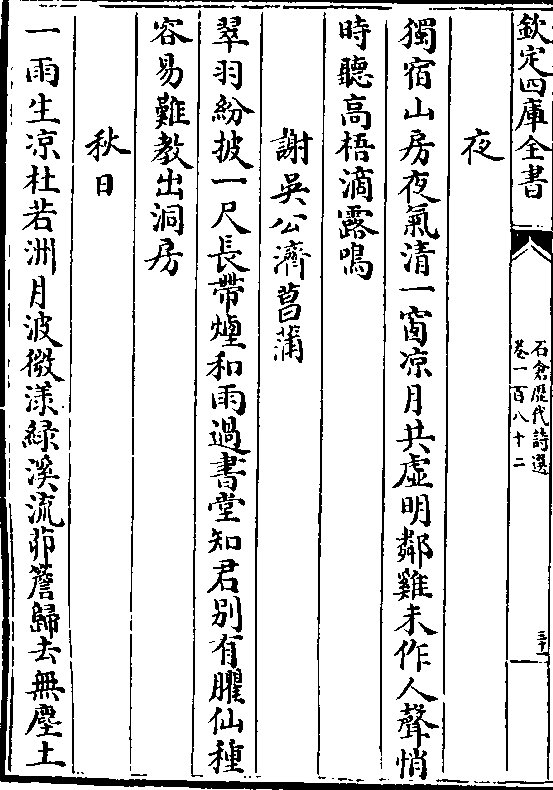 欽定四庫全書
石倉歴代詩選
卷一百八十二
三十一
夜
獨宿山房夜氣清一窗凉月共虛明鄰雞未作人聲悄
時聽高梧滴露鳴
謝吳公濟菖蒲
翠羽紛披一尺長帶煙和雨過書堂知君别有臞仙種
容易難教出洞房
秋日
一雨生凉杜若洲月波微漾緑溪流茆簷歸去無塵土